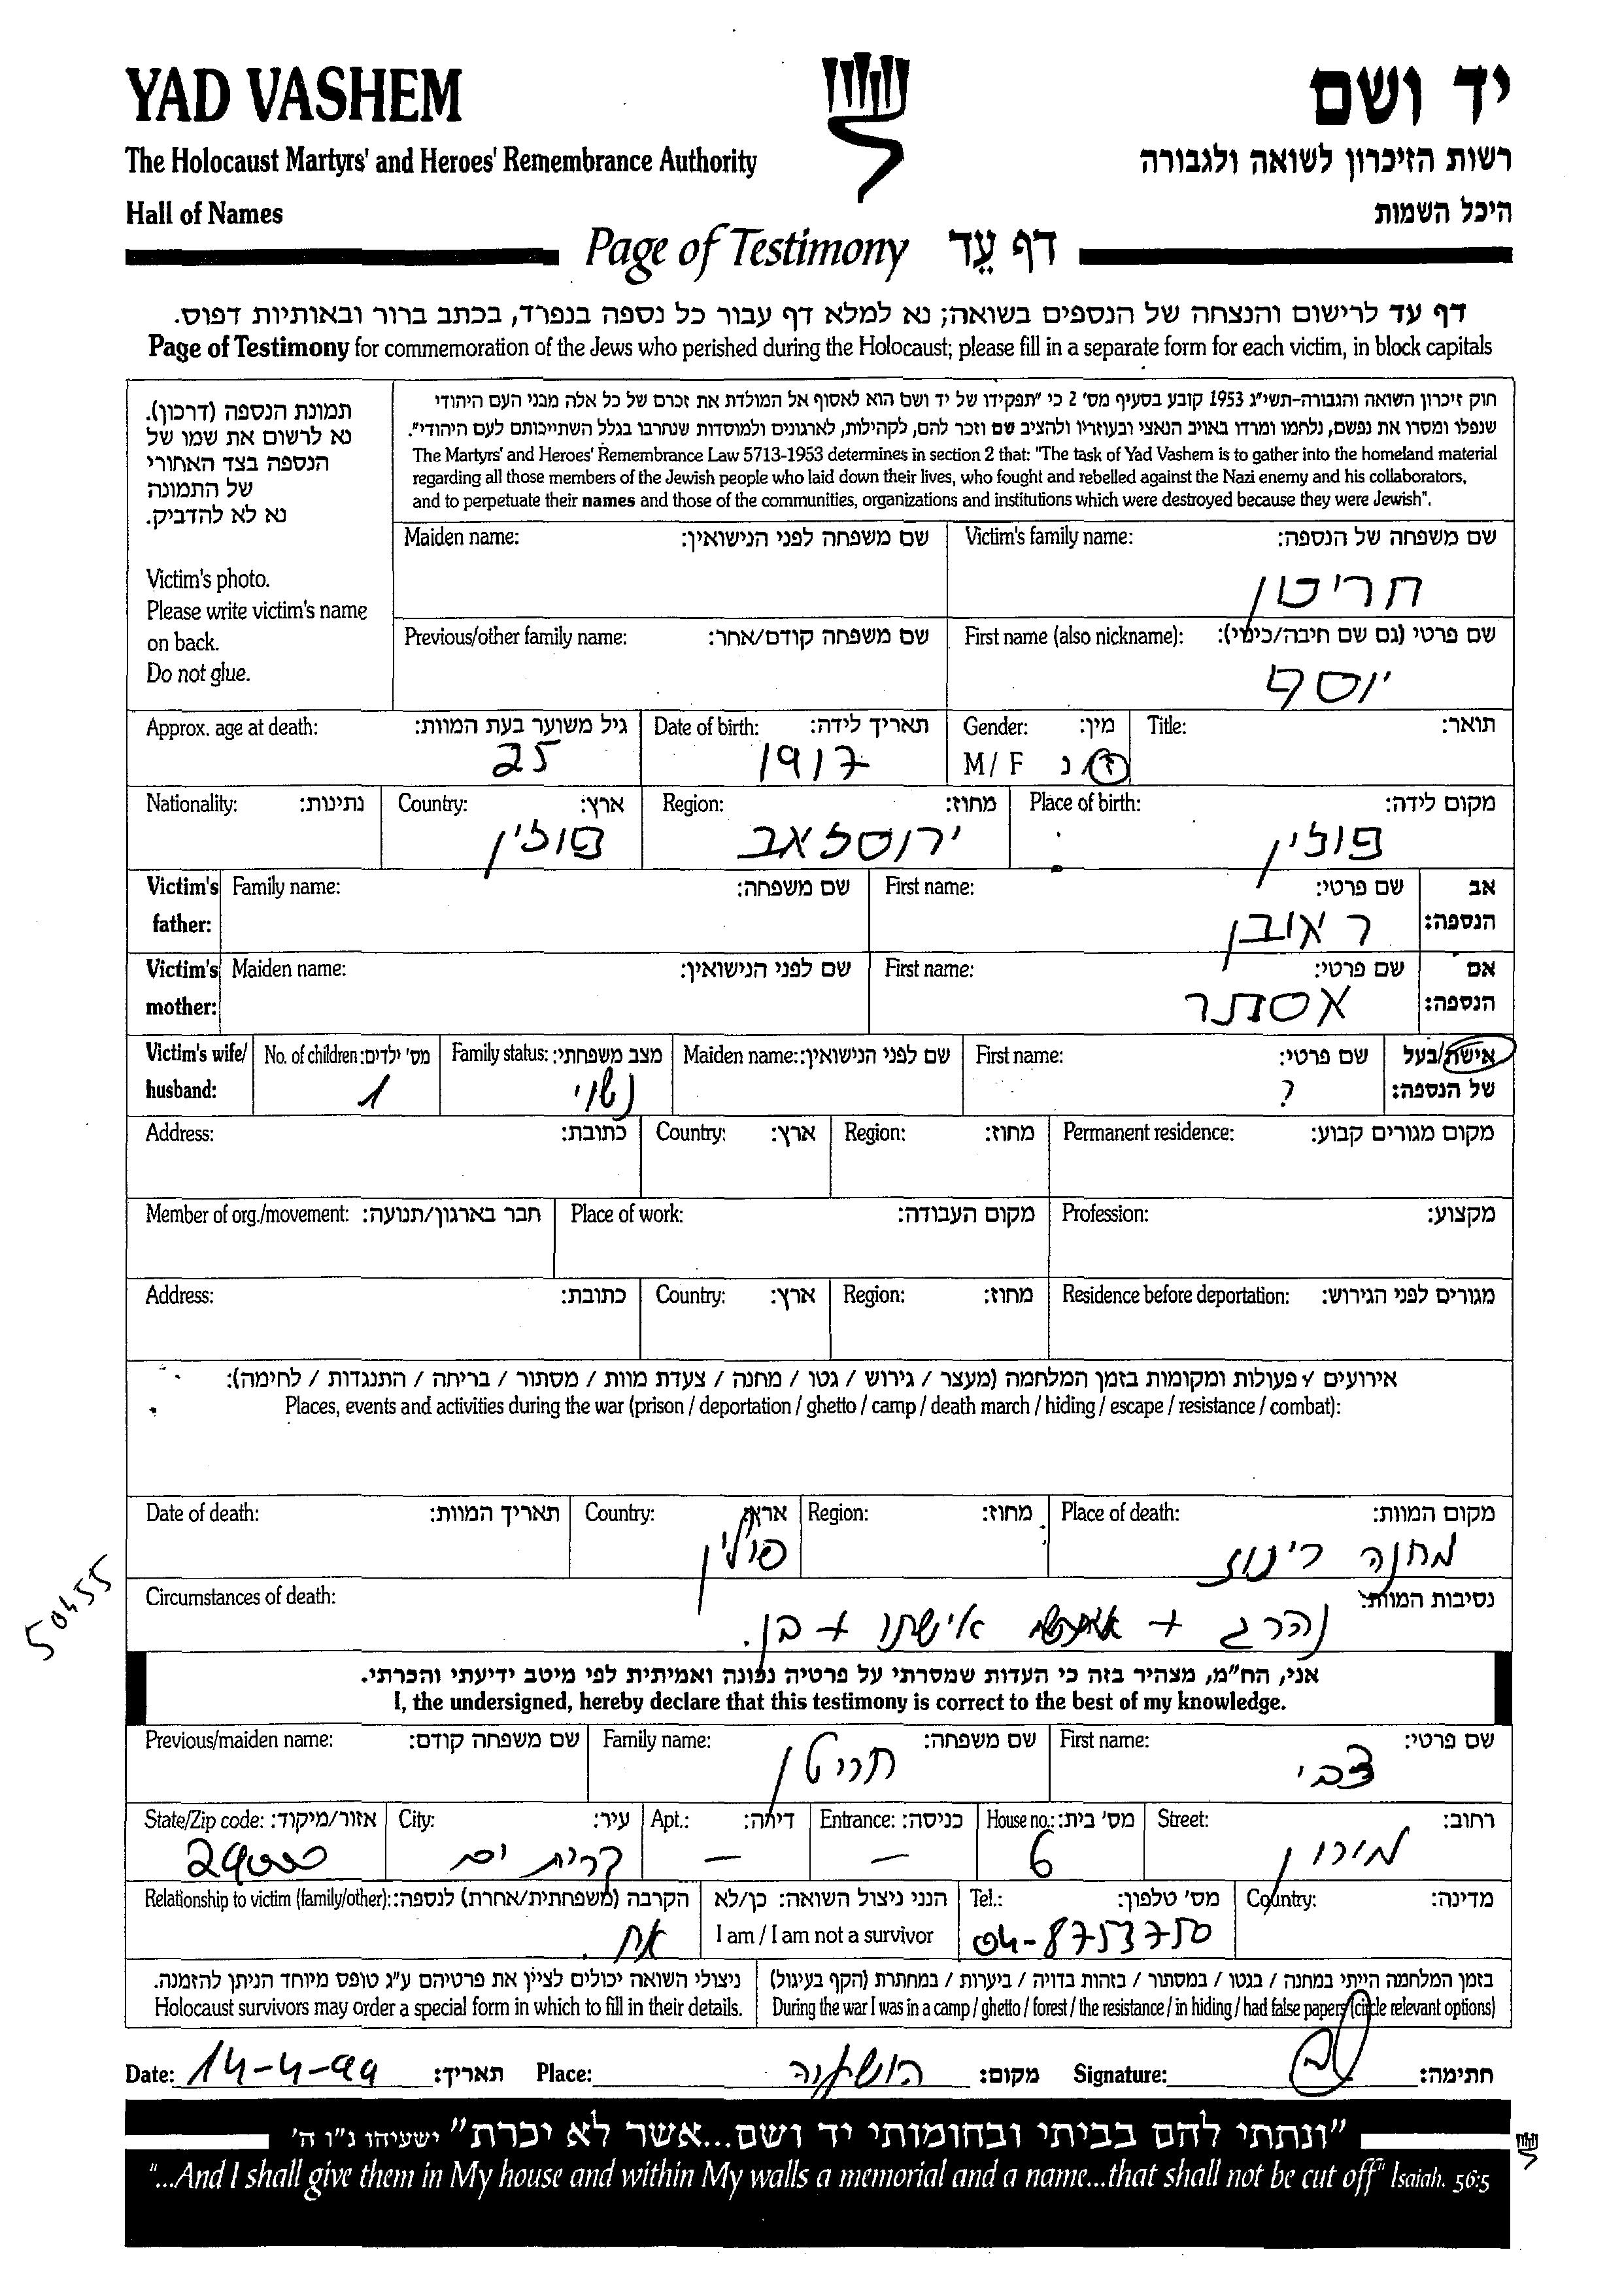 YAD VASHEM
יד ושם
The Holocaust Martyrs' and Heroes' Remembrance Authority
רשות הזיכרון לשואה ולגבורה
Hall of Names
היכל השמות
Page of Testimony דף עֵד
דף עד לרישום והנצחה של הנספים בשואה; נא למלא דף עבור כל נספה בנפרד, בכתב ברור ובאותיות דפוס.
Page of Testimony for commemoration of the Jews who perished during the Holocaust; please fill in a separate form for each victim, in block capitals
תמונת הנספה (דרכון).
נא לרשום את שמו של
הנספה בצד האחורי
של התמונה
נא לא להדביק.
Victim's photo.
Please write victim's name
on back.
Do not glue.
חוק זיכרון השואה והגבורה-תשי"ג 1953 קובע בסעיף מס' 2 כי "תפקידו של יד ושם הוא לאסוף אל המולדת את זכרם של כל אלה מבני העם היהודי
שנפלו ומסרו את נפשם, נלחמו ומרדו באויב הנאצי ובעוזריו ולהציב שם וזכר להם, לקהילות, לארגונים ולמוסדות שנחרבו בגלל השתייכותם לעם היהודי".
The Martyrs' and Heroes' Remembrance Law 5713-1953 determines in section 2 that: "The task of Yad Vashem is to gather into the homeland material
regarding all those members of the Jewish people who laid down their lives, who fought and rebelled against the Nazi enemy and his collaborators,
and to perpetuate their names and those of the communities, organizations and institutions which were destroyed because they were Jewish".
Victim's family name: שם משפחה של הנספה:
חריטן
Maiden name: שם משפחה לפני הנישואין:
First name (also nickname): שם פרטי (גם שם חיבה/כינוי):
יוסף
Previous/other family name: שם משפחה קודם/אחר:
Title: תואר:
Gender: מין:
M/ F ז/נ
Date of birth: תאריך לידה:
1917
Approx. age at death: גיל משוער בעת המוות:
25
Place of birth: מקום לידה:
פולין
Region: מחוז:
ירוסלאב
Country: ארץ:
פולין
Nationality: נתינות:
אב הנספה:
Victim's father:
First name: שם פרטי:
ראובן
Family name: שם משפחה:
אם הנספה:
Victim's mother:
First name: שם פרטי:
אסתר
Maiden name: שם לפני הנישואין:
אישת/בעל של הנספה:
Victim's wife/ husband:
First name: שם פרטי:
?
Maiden name: שם לפני הנישואין:
Family status: מצב משפחתי:
נשוי
No. of children: מס' ילדים:
1
Permanent residence: מקום מגורים קבוע:
Region: מחוז:
Country: ארץ:
Address: כתובת:
Profession: מקצוע:
Place of work: מקום העבודה:
Member of org./movement: חבר בארגון/תנועה:
Residence before deportation: מגורים לפני הגירוש:
Region: מחוז:
Country: ארץ:
Address: כתובת:
אירועים / פעולות ומקומות בזמן המלחמה (מעצר / גירוש / גטו / מחנה / צעדת מוות / מסתור / בריחה / התנגדות / לחימה):
Places, events and activities during the war (prison / deportation / ghetto / camp / death march / hiding / escape / resistance / combat):
Place of death: מקום המוות:
מחנה ריינוז
Region: מחוז:
Country: ארץ:
פולין
Date of death: תאריך המוות:
Circumstances of death: נסיבות המוות:
נהרג + אישתו + בן.
50455
אני, הח"מ, מצהיר בזה כי העדות שמסרתי על פרטיה נכונה ואמיתית לפי מיטב ידיעתי והכרתי.
I, the undersigned, hereby declare that this testimony is correct to the best of my knowledge.
First name: שם פרטי:
צבי
Family name: שם משפחה:
חריטן
Previous/maiden name: שם משפחה קודם:
Street: רחוב:
מירון
House no.: מס' בית:
6
Entrance: כניסה:
–
Apt.: דירה:
–
City: עיר:
קרית ים
State/Zip code: אזור/מיקוד:
29000
Country: מדינה:
Tel.: מס' טלפון:
04-8753750
הנני ניצול השואה: כן/לא
I am / I am not a survivor
Relationship to victim (family/other): הקרבה (משפחתית/אחרת) לנספה:
אח.
בזמן המלחמה הייתי במחנה / בגטו / במסתור / בזהות בדויה / ביערות / במחתרת (הקף בעיגול)
During the war I was in a camp / ghetto / forest / the resistance / in hiding / had false papers (circle relevant options)
ניצולי השואה יכולים לציין את פרטיהם ע"ג טופס מיוחד הניתן להזמנה.
Holocaust survivors may order a special form in which to fill in their details.
Date: 14-4-99 תאריך: Place: מקום: Signature: חתימה:
"ונתתי להם בביתי ובחומותי יד ושם...אשר לא יכרת" ישעיהו נ"ו ה'
"...And I shall give them in My house and within My walls a memorial and a name...that shall not be cut off" Isaiah. 56:5